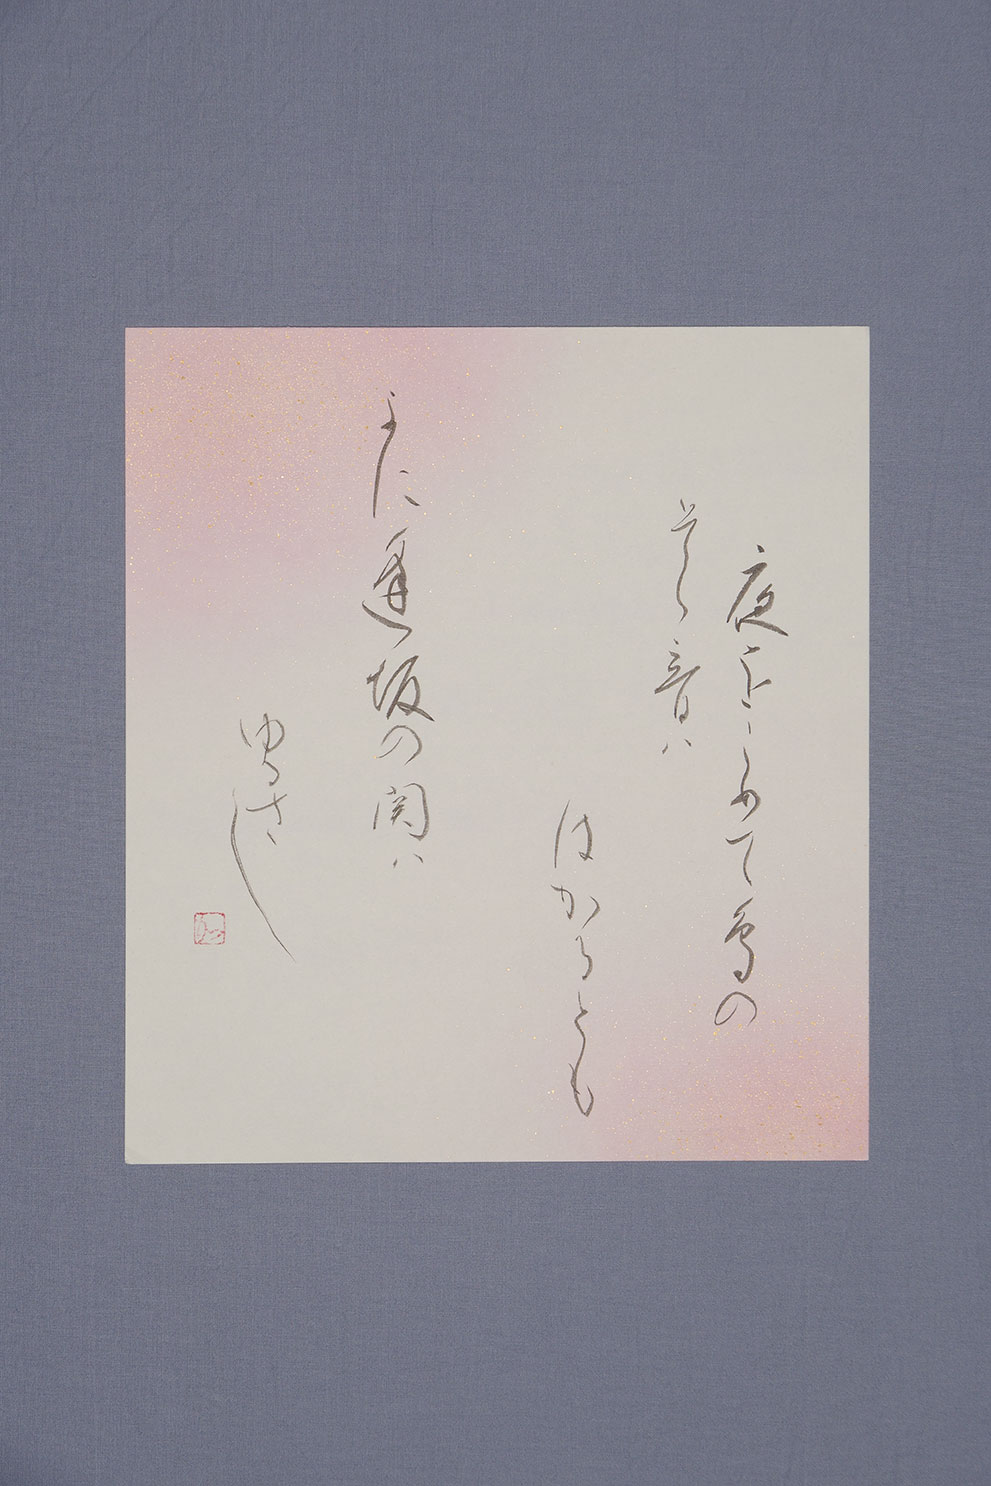 夜をこめて鳥の
そら音ハ
はかるとも
よに逢坂の関ハ
ゆるさし